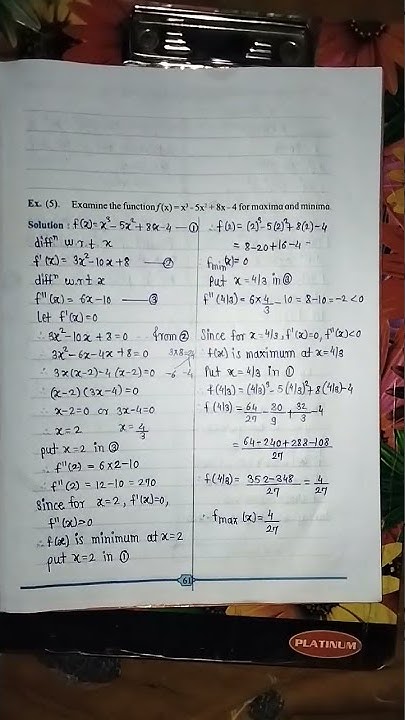 Ex. (5). Examine the function f(x) = x³ - 5x² + 8x - 4 for maxima and minima.
Solution : f(x) = x³ - 5x² + 8x - 4 - ①
diffⁿ w.r.t. x
f'(x) = 3x² - 10x + 8 - ②
diffⁿ w.r.t x
f"(x) = 6x - 10 - ③
Let f'(x) = 0
∴ 3x² - 10x + 8 = 0 from ②
3x² - 6x - 4x + 8 = 0 3x8=24
∴ 3x(x-2) - 4(x-2) = 0 -6 -4
∴ (x-2)(3x-4) = 0
∴ x-2=0 or 3x-4=0
∴ x = 2 x = 4/3
put x = 2 in ③
∴ f"(2) = 6x2-10
∴ f"(2) = 12-10 = 2>0
Since for x=2, f'(x)=0,
f"(x)>0
∴ f(x) is minimum at x=2
put x=2 in ①
∴ f(2) = (2)³ - 5(2)² + 8(2) - 4
= 8-20+16-4
fmin(x) = 0
Put x = 4/3 in ③
f"(4/3) = 6x4/3 - 10 = 8-10 = -2 < 0
Since for x=4/3, f'(x)=0, f"(x)<0
∴ f(x) is maximum at x=4/3
Put x = 4/3 in ①
∴ f(4/3) = (4/3)³ - 5(4/3)² + 8(4/3) - 4
∴ f(4/3) = 64/27 - 80/9 + 32/3 - 4
= 64-240+288-108/27
∴ f(4/3) = 352-348/27 = 4/27
∴ fmax(x) = 4/27
61
PLATINUM